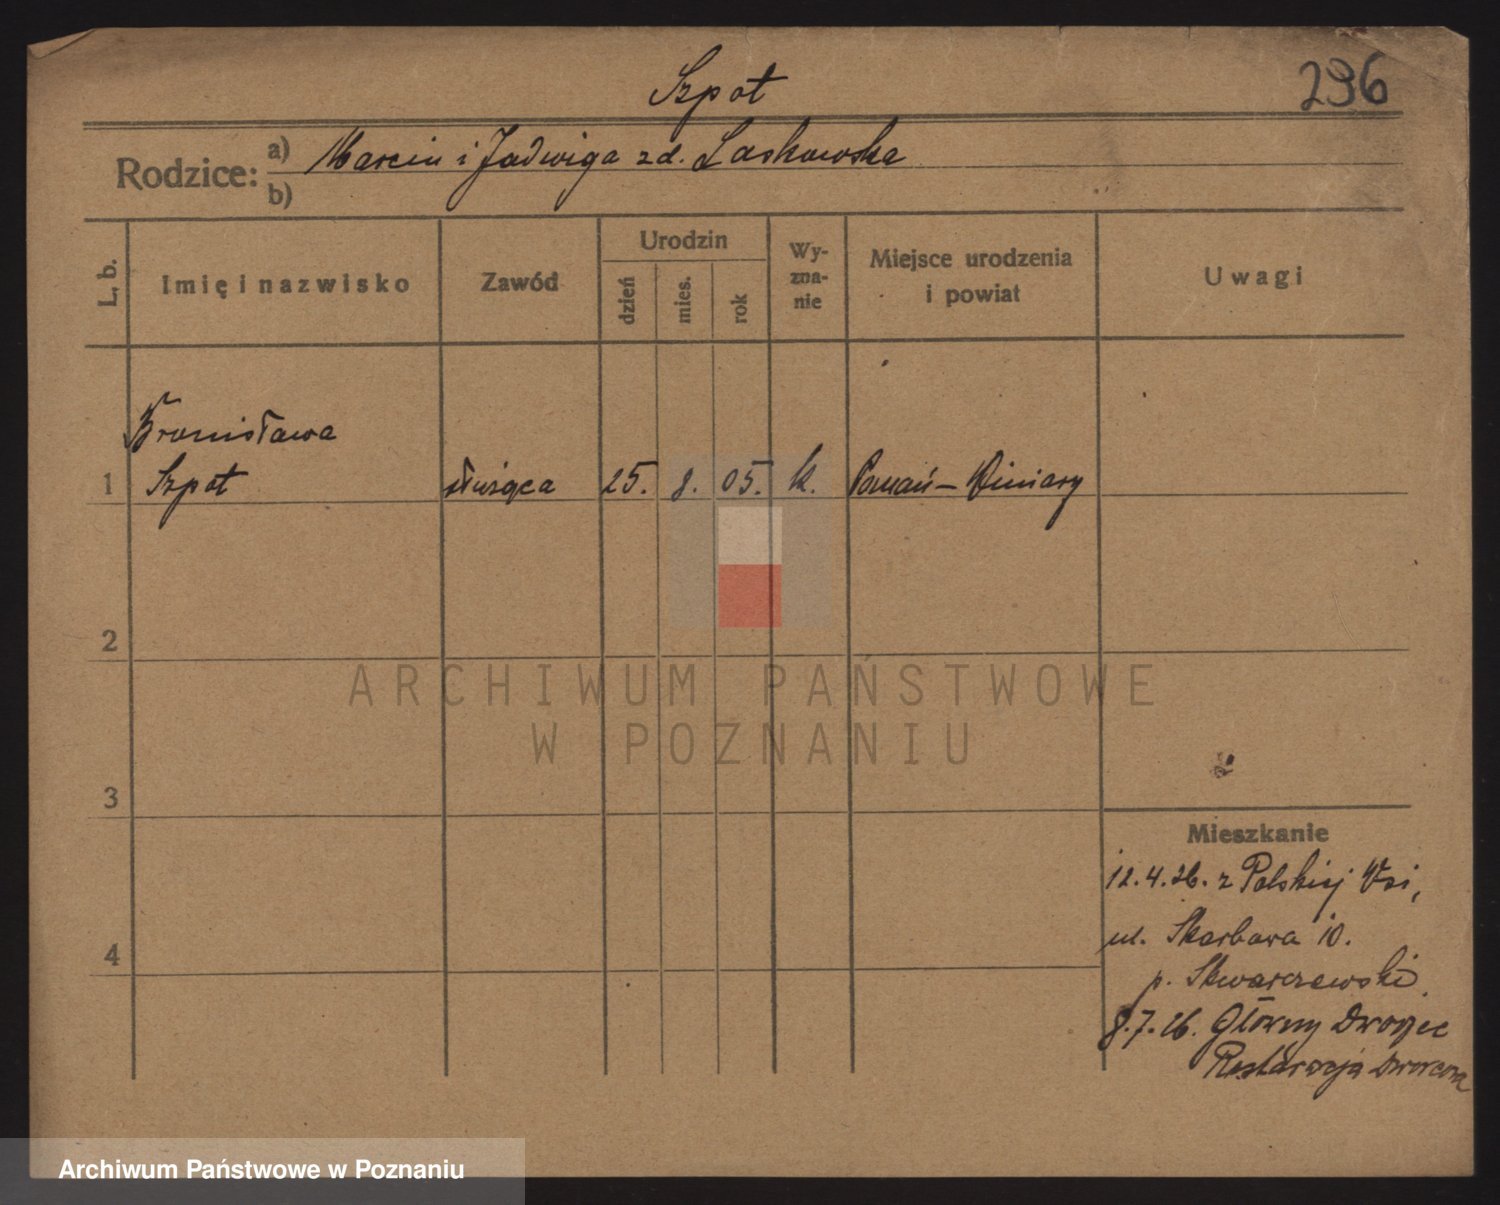 Szpot
296
Rodzice:
a) Marcin i Jadwiga zd. Laskowska
b)
L. b.
Imię i nazwisko
Zawód
Urodzin
dzień
mies.
rok
Wy-
zna-
nie
Miejsce urodzenia
i powiat
Uwagi
Bronisława
1 Szpot służąca 25. 8. 05. k. Poznań – Winiary
2
3
4
Mieszkanie
12.4.26. z Polskiej Wsi,
ul. Skarbowa 10.
p. Skwarczewski
8.7.26. Główny Dworzec
Restauracja Dworcowa
ARCHIWUM PAŃSTWOWE
W POZNANIU
Archiwum Państwowe w Poznaniu